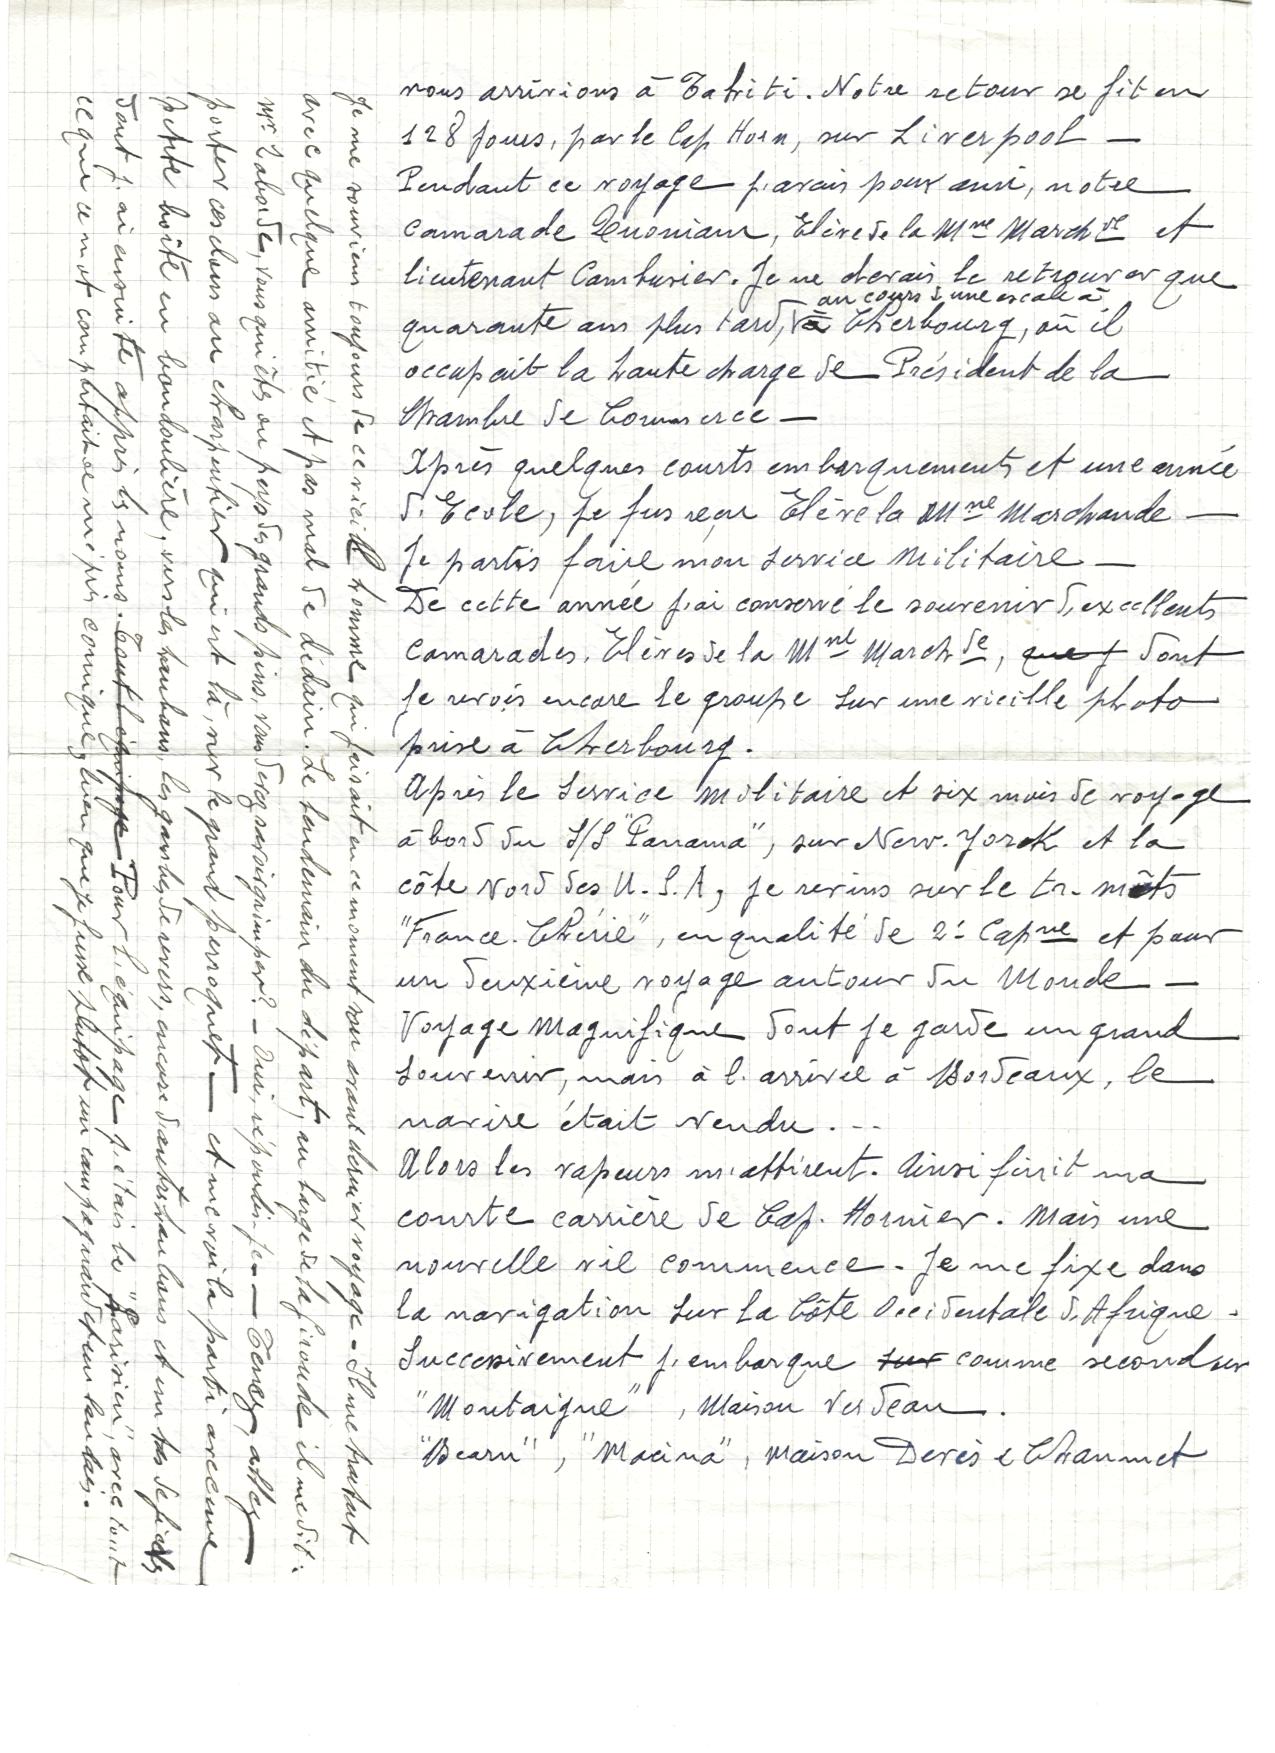 nous arrivions à Tahiti. Notre retour se fit en
128 jours, par le Cap Horn, sur Liverpool —
Pendant ce voyage j'avais pour ami, notre
camarade Quoniam, Elève de la Mne Marchde et
lieutenant Cambusier. Je ne devais le retrouver que
au cours d'une escale à
quarante ans plus tard, à Cherbourg, où il
occupait la haute charge de Président de la
Chambre de Commerce —
Après quelques courts embarquements et une année
d'Ecole, je fus reçu Elève la Mne Marchande —
Je partis faire mon service Militaire —
De cette année j'ai conservé le souvenir d'excellents
camarades. Elèves de la Mne Marchde, que j dont
je revois encore le groupe sur une vieille photo
prise à Cherbourg.
Après le Service Militaire et six mois de voyage
à bord du S/S "Panama", sur New-Yorck et la
côte Nord des U.S.A, je revins sur le tr. mâts
"France-Chérie", en qualité de 2e Capne et pour
un deuxième voyage autour du Monde —
Voyage Magnifique dont je garde un grand
souvenir, mais à l'arrivée à Bordeaux, le
navire était vendu . - -
Alors les vapeurs m'attirent. Ainsi finit ma
courte carrière de Cap-Hornier. Mais une
nouvelle vie commence - Je me fixe dans
la navigation sur la Côte Occidentale d'Afrique -
Successivement j'embarque sur comme second sur
"Montaigne", Maison Verdeau.
"Bearn", "Macina", Maison Devès & Chaumet
Je me souviens toujours de ce vieil homme qui faisait en ce moment son avant dernier voyage - Il me traitait
avec quelque amitié et pas mal de dédain. Le lendemain du départ, au large de la Gironde il me dit :
Mr Laborde, vous qui êtes du pays des grands pins, vous devez savoir grimper ? - Oui, répondis-je - — Tenez, allez
porter ces clous au charpentier qui est là, sur le grand perroquet — et me voilà parti avec une
petite boîte en bandoulière, vers les haubans, les gambes de revers, encore d'autres haubans et un tas de ficelles
dont j'ai ensuite appris les noms. Tout l'équipage Pour l'équipage j'étais le "Parisien", avec tout
ce que ce mot comportait de mépris comique, bien que je fusse plutôt un campagnard et un landais.